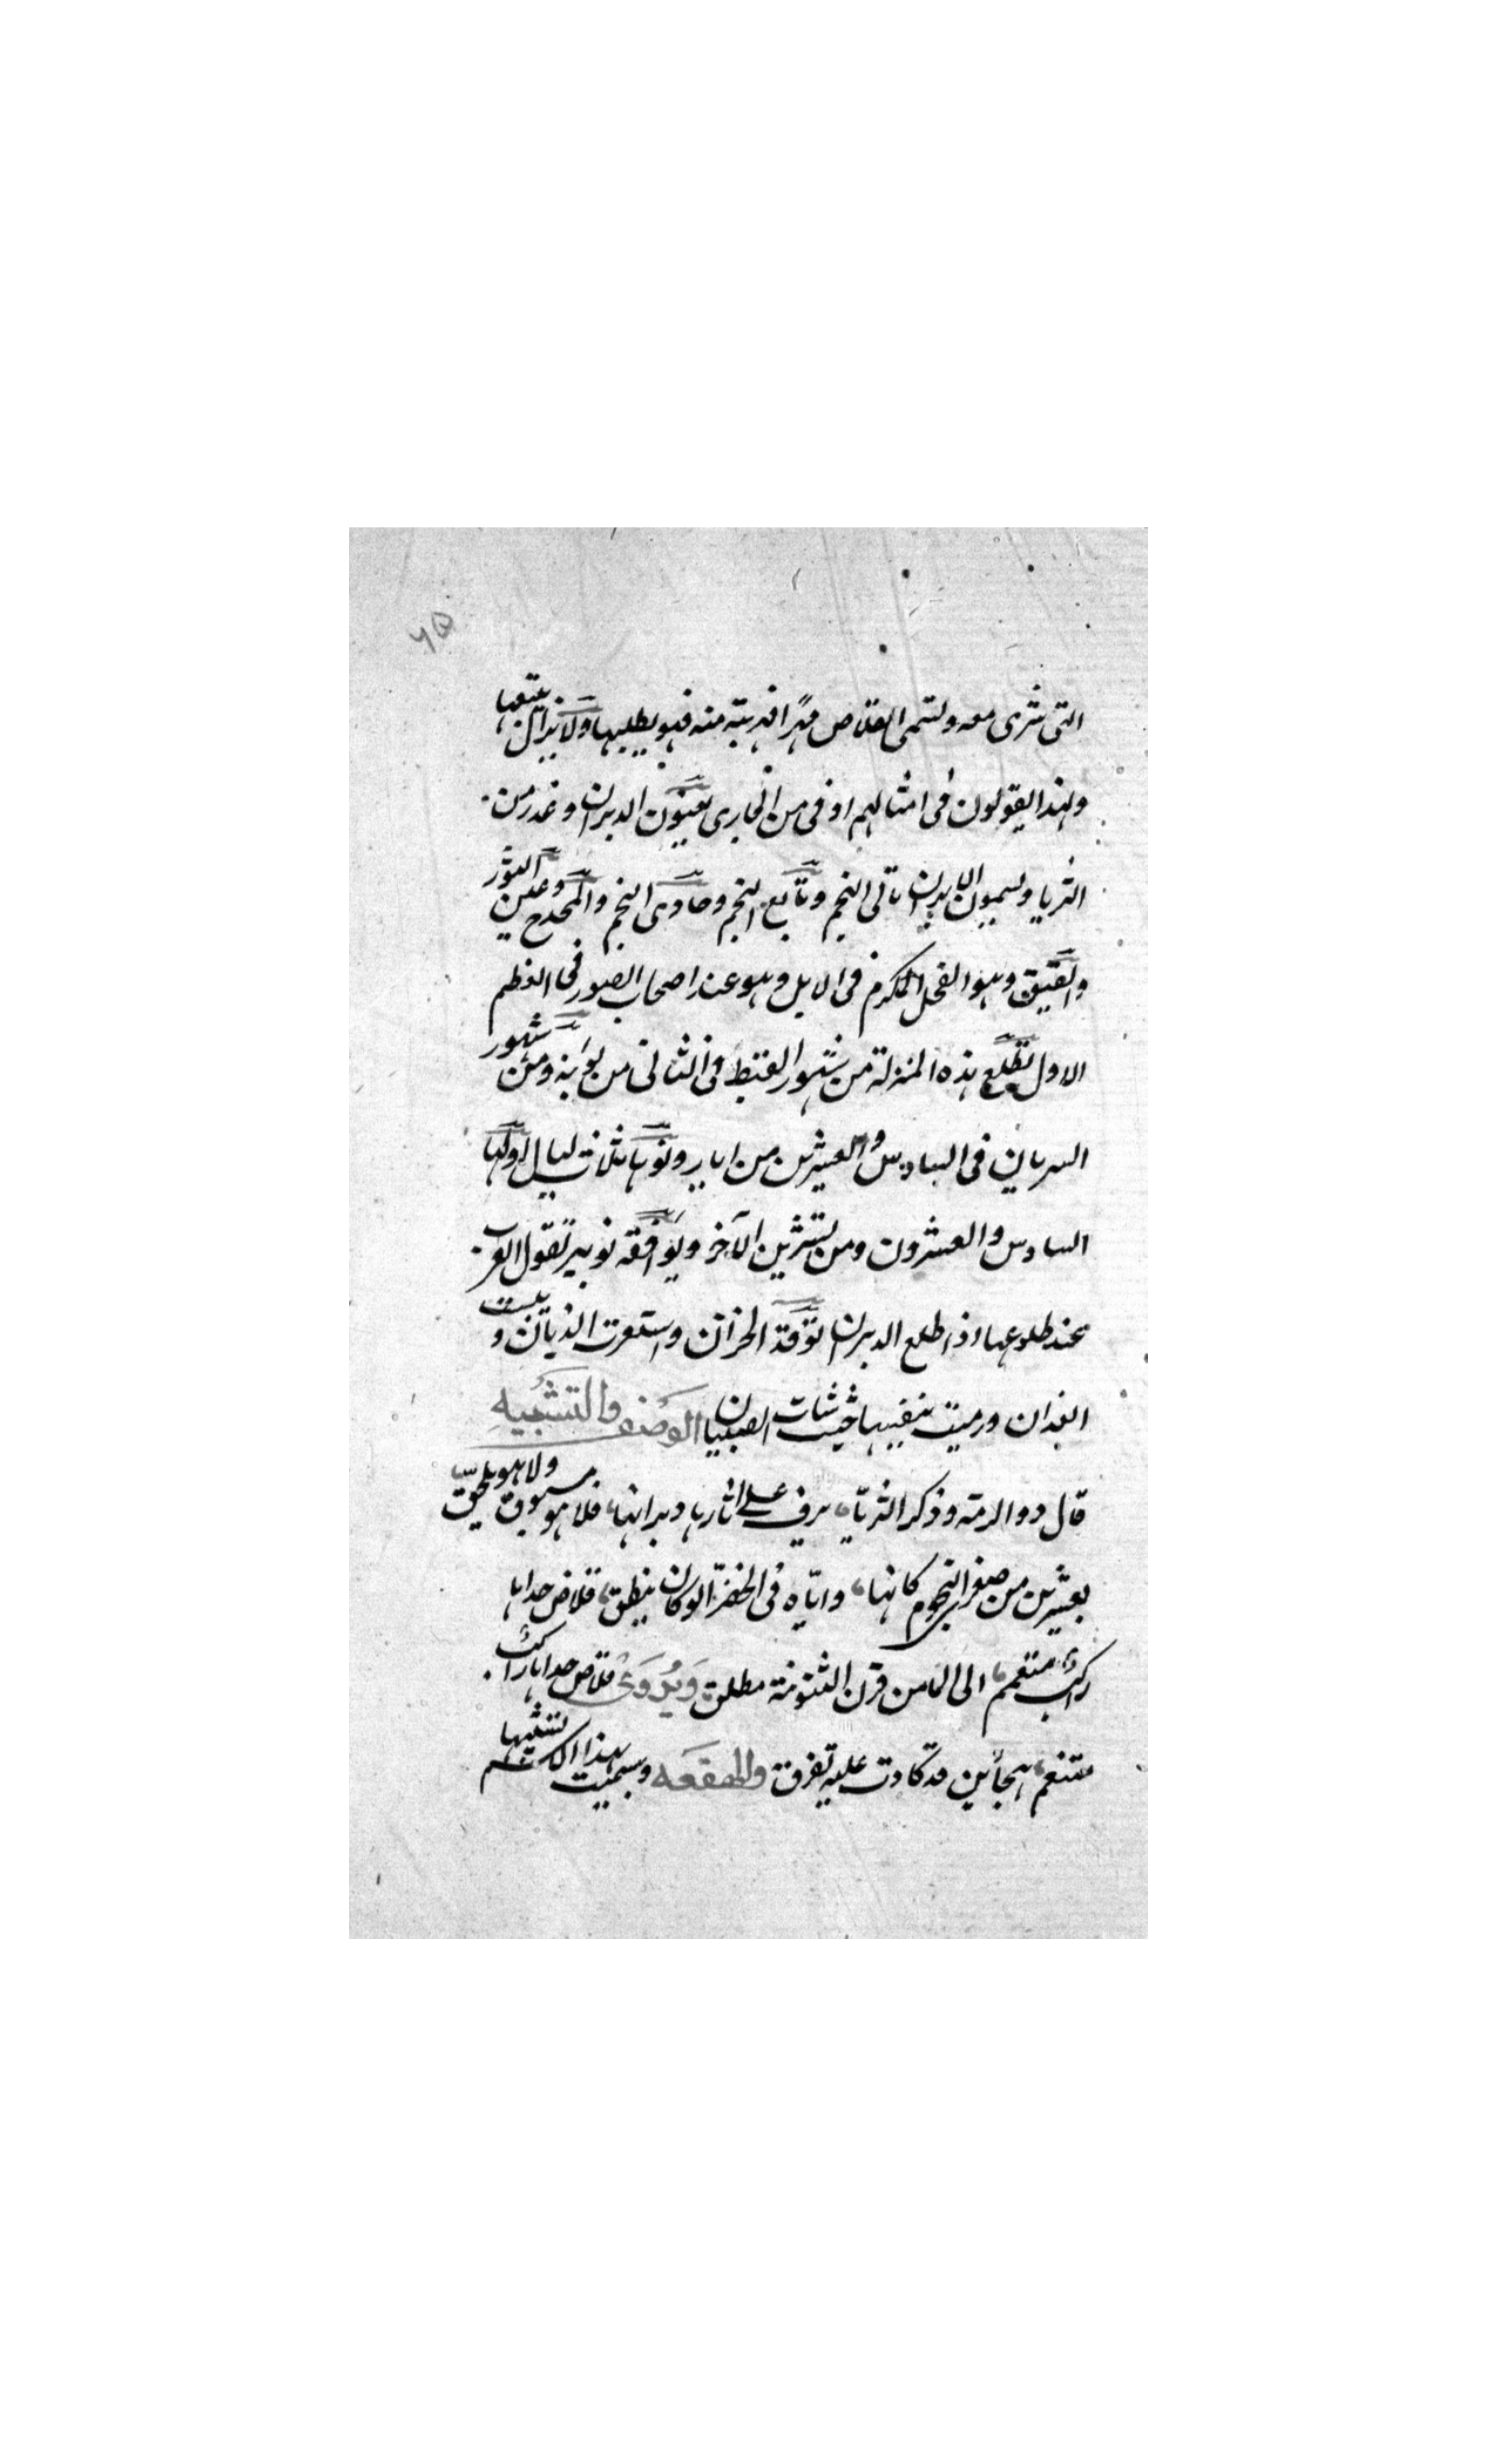 ٦٥
التى شرى معه وتسمى القلاص مهرا قربته منه فهو يطلبها ولا يزال يتبعها
ولهذا يقولون فى امثالهم اوفى من الحارى يعنون الدبران وغدر من
الثريا ويسمون الدبران تالى النجم وتابع النجم وحادى النجم والمجدح وعين الثور
والفنيق وهو الفحل المكرم فى الابل وهو عند اصحاب الصور فى العظم
الاول تطلع هذه المنزلة من شهور القبط فى الثانى من بؤنة ومن شهور
السريان فى السادس والعشرين من ايار ونوها ثلاث ليال اولها
السادس والعشرون ومن تشرين الآخر ويوافقه نونبر تقول العرب
عند طلوعها اذا طلع الدبران توقدت الحزان واستعرت الذبان ويبست
الغدران ورميت بنفيها حيث شات الصبيان الوصف والتشبيه
قال ذو الرمة وذكر الثريا يرف على اثارها دبرانها فلا هو مسبوق ولا هو يلحق
بعشرين من صغرى النجوم كانها واياه فى الخضرا لو كان ينطق قلاص حداها
راكب متعمم الى الما من قرن التنوفة مطلق ويروى قلاص حداها راكب
متعمم هجائن قد كادت عليه تفرق والهقعة وسميت بهذا الاسم لتشبيهها